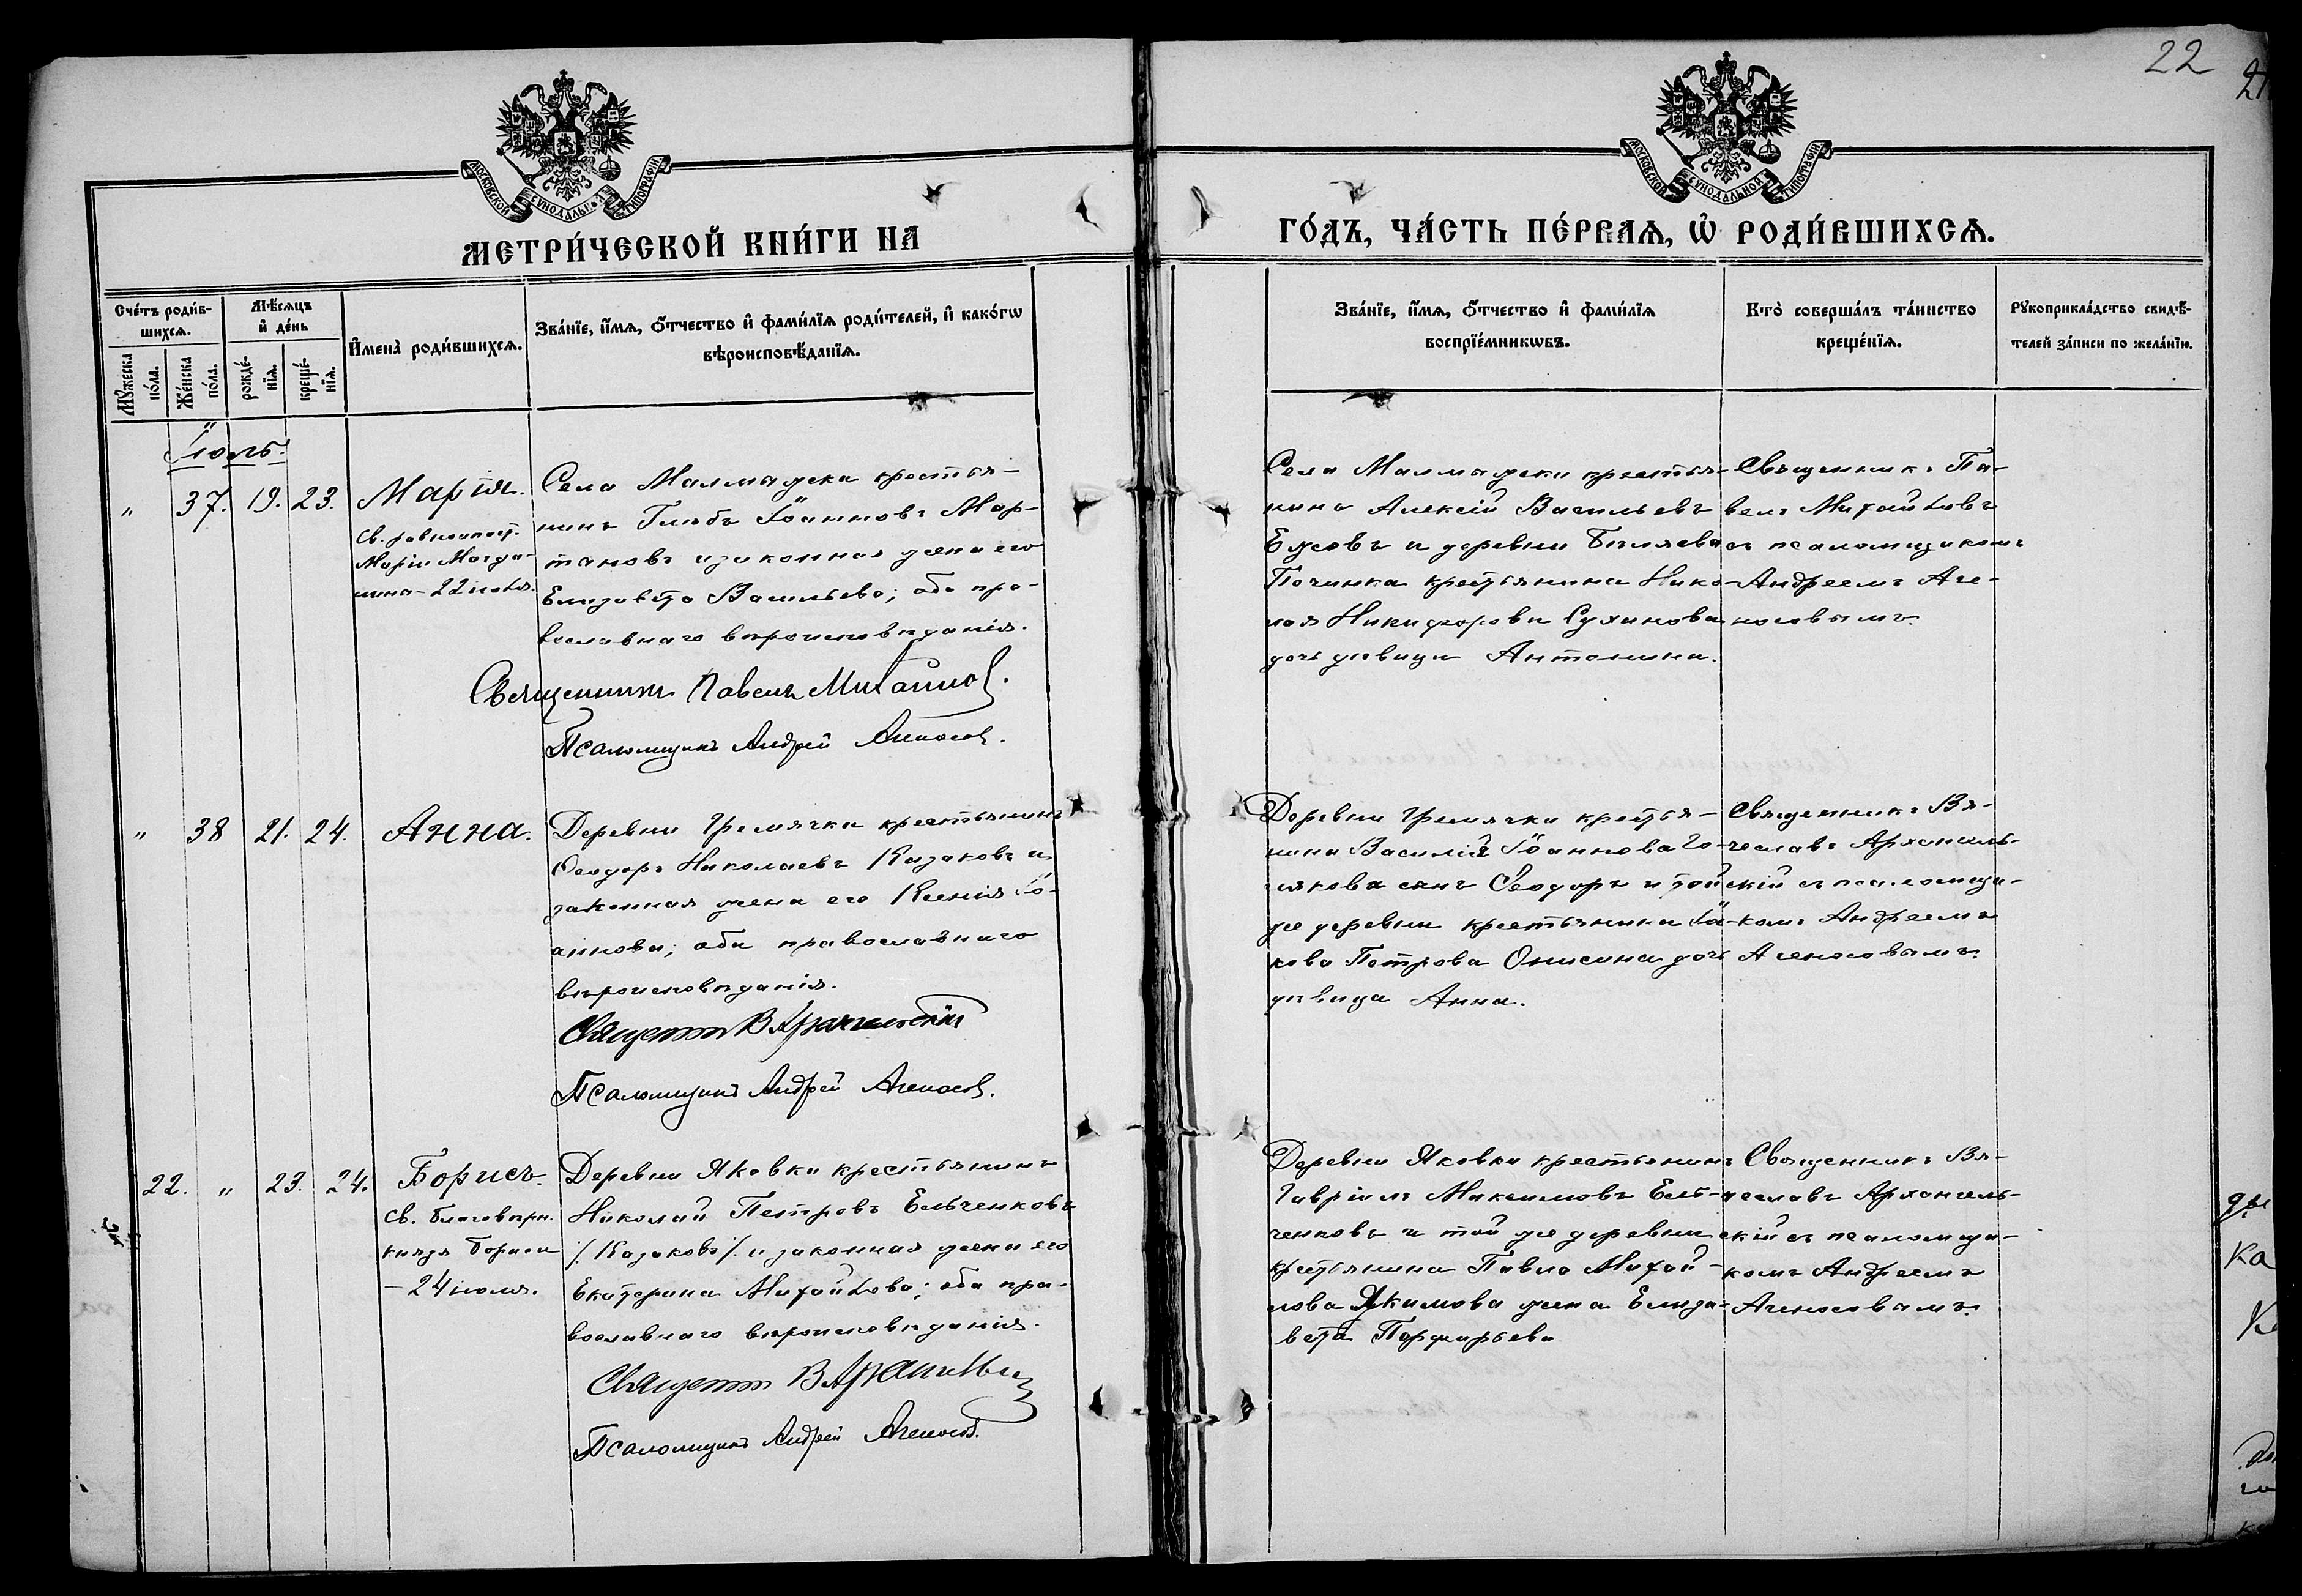 22
МОСКОВСКОЙ СѴНОДАЛЬНОЙ ТИПОГРАФІИ
МОСКОВСКОЙ СѴНОДАЛЬНОЙ ТИПОГРАФІИ
МЕТРИ́ЧЕСКОЙ КНИ́ГИ НА
ГО́ДЪ, ЧА́СТЬ ПЕ́РВАЯ, Ѡ РОДИ́ВШИХСЯ.
Сче́тъ роди́в-
шихся.
Мꙋ́жеска
по́ла.
Же́нска
по́ла.
Мѣ́сяцъ
и де́нь
рожде́-
нїя.
креще́-
нїя.
Имена̀ роди́вшихся.
Зва́нїе, и́мя, о́тчество и фами́лїя роди́телей, и како́гѡ
вѣроисповѣ́данїя.
Зва́нїе, и́мя, о́тчество и фами́лїя
воспрїе́мникѡвъ.
Кто̀ соверша́лъ та́инство
креще́нїя.
Рꙋкоприкла́дство свидѣ́-
телей за́писи по жела́нїю.
Іюль.
" 37. 19. 23.
Марія.
Св. равноапост.
Маріи Магда-
лина - 22 іюля.
Села Малмыжки крестья-
нинъ Глѣбъ Іоанновъ Мар-
тановъ и законная жена его
Елизавета Васильева; оба пра-
вославнаго вѣроисповѣданія.
Священникъ Павелъ Михайлов.
Псаломщикъ Андрей Агеносов.
Села Малмыжки крестья-
нинъ Алексій Васильевъ
Ежовъ и деревни Бѣляева
Починка крестьянина Нико-
лая Никифорова Сухинова
дочь дѣвица Антонина.
Священникъ Па-
велъ Михайловъ
съ псаломщикомъ
Андреемъ Аге-
носовымъ.
" 38 21. 24.
Анна.
Деревни Гремячки крестьянинъ
Ѳеодоръ Николаевъ Казаковъ и
законная жена его Ксенія Іо-
аннова; оба православнаго
вѣроисповѣданія.
Священникъ В Архангельскій
Псаломщикъ Андрей Агеносов.
Деревни Гремячки крестья-
нина Василія Іоаннова Го-
лякова сынъ Ѳеодоръ и той
же деревни крестьянина Іа-
кова Петрова Онисина дочь
дѣвица Анна.
Священникъ Вя-
чеславъ Архангель-
скій съ псаломщи-
комъ Андреемъ
Агеносовымъ.
22. " 23. 24.
Борисъ.
Св. благовѣрн.
князя Бориса
- 24 іюля.
Деревни Яковки крестьянинъ
Николай Петровъ Ельченковъ
/. Казаковъ /. и законная жена его
Екатерина Михайлова; оба пра-
вославнаго вѣроисповѣданія.
Священникъ В Архангельскій
Псаломщикъ Андрей Агеносов.
Деревни Яковки крестьянинъ
Гавріилъ Максимовъ Ель-
ченковъ и той же деревни
крестьянина Павла Михай-
лова Якимова жена Елиза-
вета Порфирьева
Священникъ Вя-
чеславъ Архангель-
скій съ псаломщи-
комъ Андреемъ
Агеносовымъ.